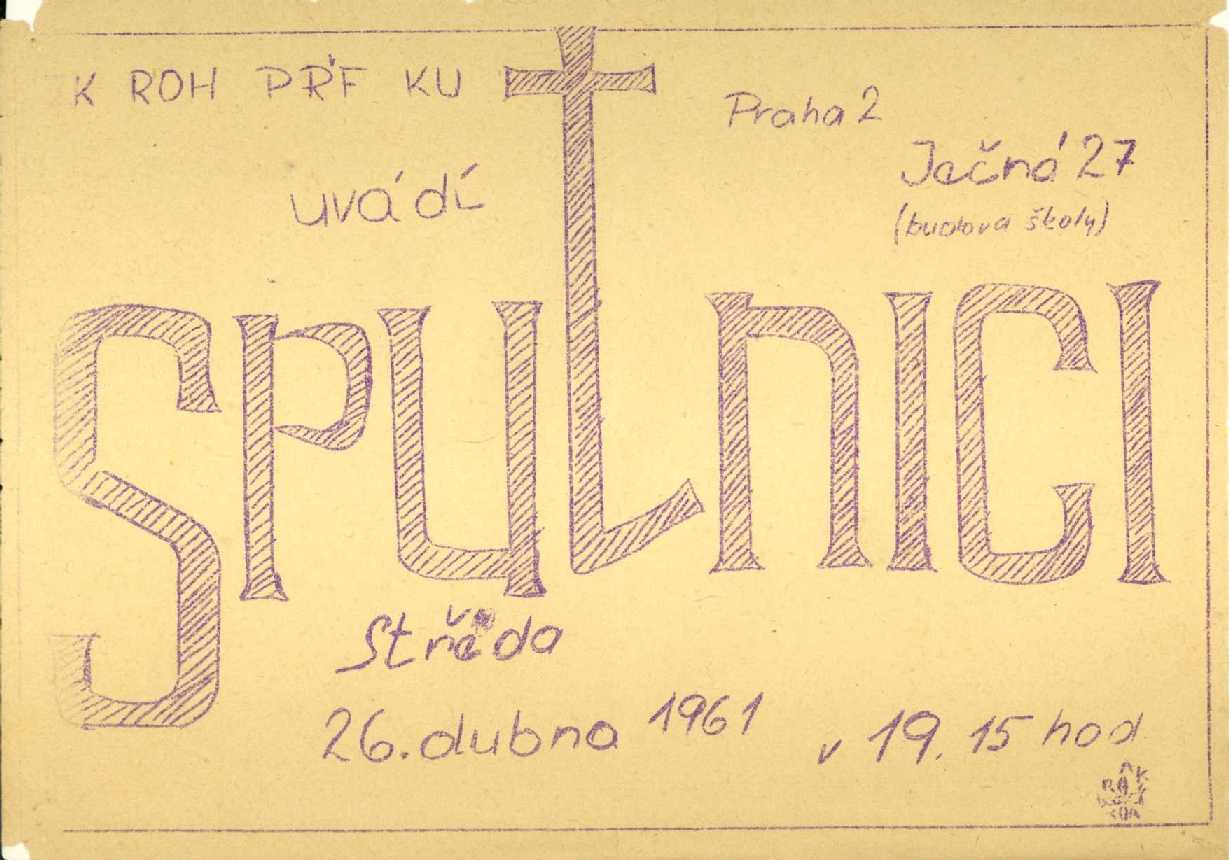 K ROH PŘF KU
uvádí
Praha 2
Ječná 27
(budova školy)
SPUtnICI
Středa
26. dubna 1961 v 19.15 hod.